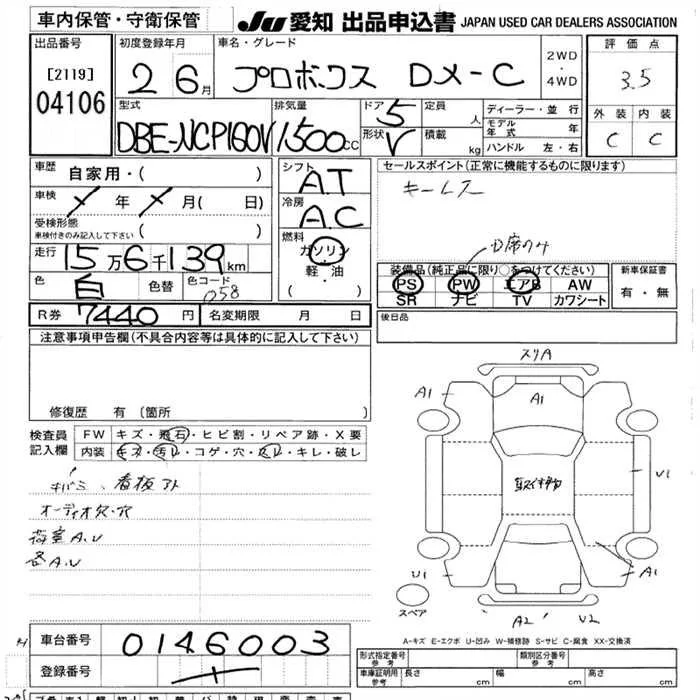 車内保管・守衛保管
JU 愛知 出品申込書 JAPAN USED CAR DEALERS ASSOCIATION
出品番号
[2119]
04106
初度登録年月
2 6月
車名・グレード
プロボックス DX-C
2WD
・
4WD
評価点
3.5
外装 内装
C C
型式
DBE-NCP160V
排気量
1500cc
ドア 5
形状 V
定員 人
積載 kg
ディーラー・並行
モデル年式 年
ハンドル 左・右
車歴 自家用・( )
車検 年 月(日)
受検形態
車検付きのみ記入して下さい ( )
走行 15万6千139km
色 白 色替 色コード 058
シフト
AT
冷房
A.C
燃料
ガソリン
軽・油
( ・ )
セールスポイント(正常に機能するものに限ります)
キーレス
装備品(純正品に限り○をつけてください)
PS PW エアB AW
SR ナビ TV カワシート
新車保証書
有・無
R券 7440 円 名変期限 月 日
後日品
注意事項申告欄(不具合内容等は具体的に記入して下さい)
修復歴 有 (箇所
検査員記入欄
FW キズ・飛石・ヒビ割・リペア跡・X要
内装 キズ・汚レ・コゲ・穴・スレ・キレ・破レ
看板アト
オーディオ穴・穴
荷室A.U
各A.U
スリA
A1
A1
U1
U1
A1
A2
U2
スペア
A-キズ E-エクボ U-凹み W-補修跡 S-サビ C-腐食 XX-交換済
車台番号 0146003
登録番号
形式指定番号
参考
類別区分番号
参考
車庫証明用
参考
長さ cm 幅 cm 高さ cm